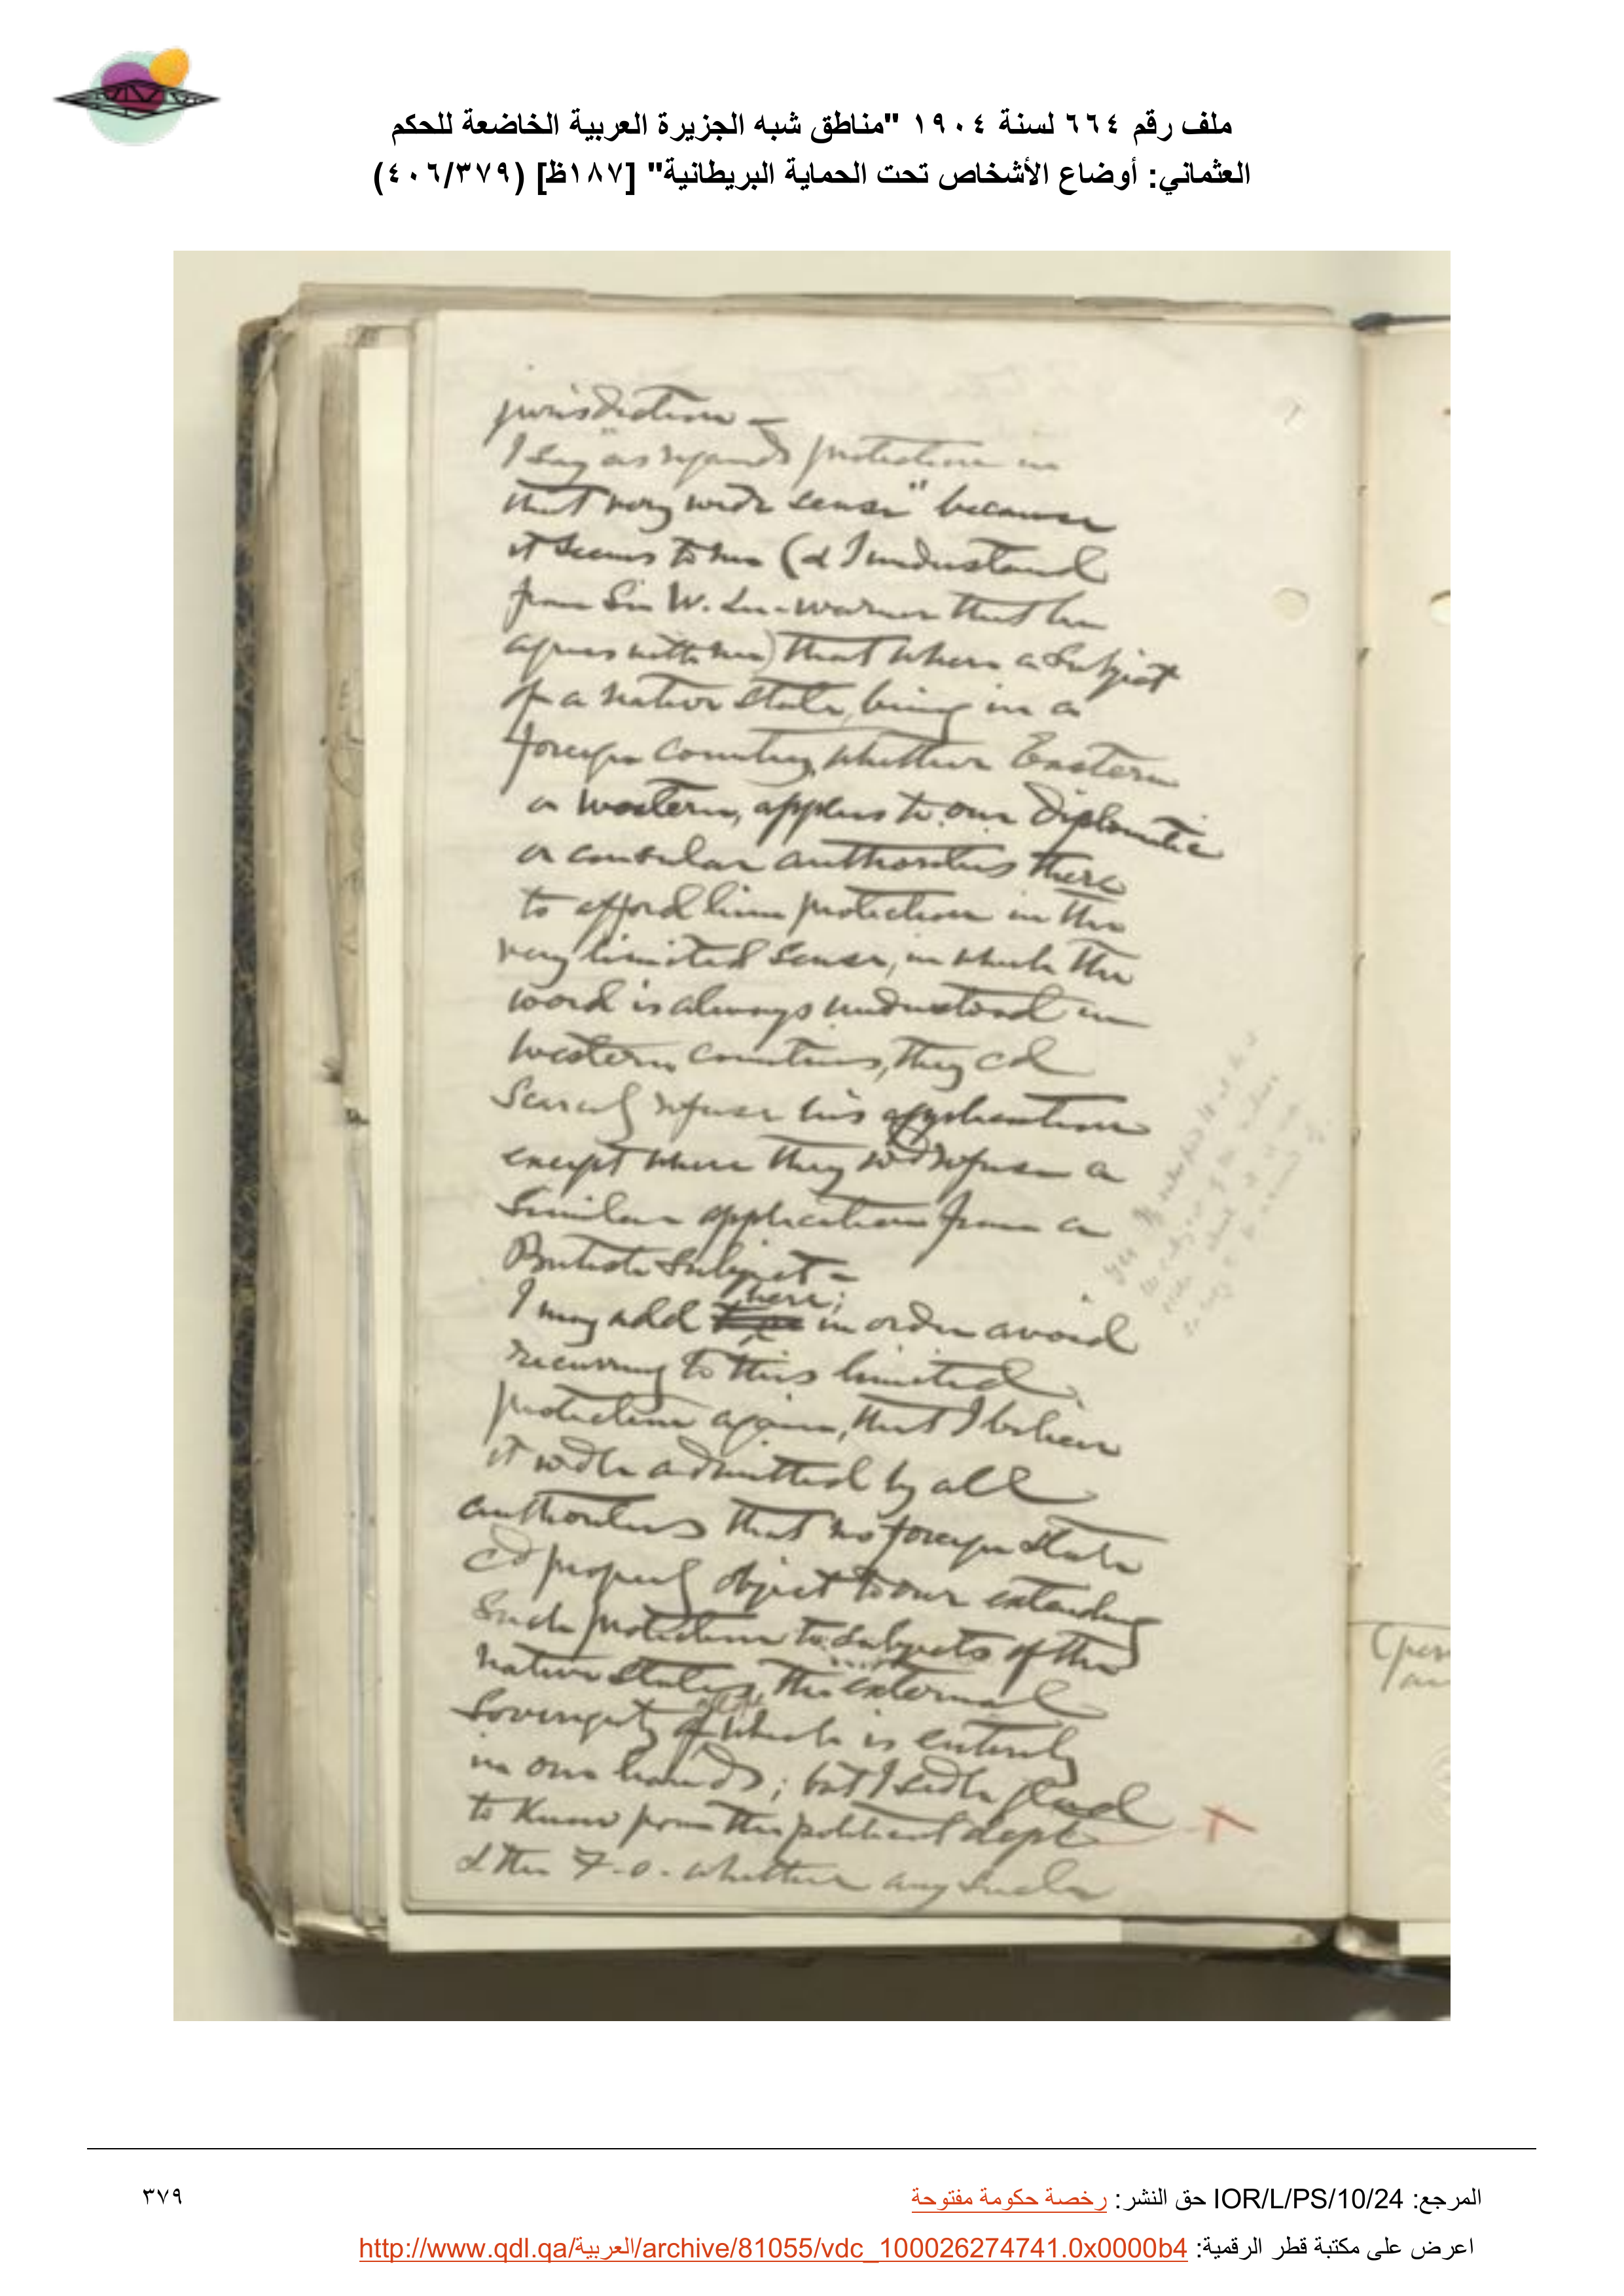 ملف رقم ٦٦٤ لسنة ١٩٠٤ "مناطق شبه الجزيرة العربية الخاضعة للحكم
العثماني: أوضاع الأشخاص تحت الحماية البريطانية" [١٨٧ظ] (٤٠٦/٣٧٩)
jurisdiction –
I say "as regards protection in
that very wide sense" because
it seems to me (& I understand
from Sir W. Lee-Warner that he
agrees with me) that where a subject
of a native state, being in a
foreign country, whether Eastern
or Western, applies to our diplomatic
or consular authorities there
to afford him protection in the
very limited sense, in which the
word is always understood in
Western countries, they cd
scarcely refuse his application
except where they wd refuse a
similar application from a
British subject –
I may add there; in order avoid
recurring to this limited
protection again, that I believe
it wd be admitted by all
authorities that no foreign state
cd properly object to our extending
such protection to subjects of the
native states, the external
sovereignty of which is entirely
in our hands; but I sd be glad
to know from the political dept
& the F.O. whether any such
المرجع: IOR/L/PS/10/24 حق النشر: رخصة حكومة مفتوحة
٣٧٩
اعرض على مكتبة قطر الرقمية: http://www.qdl.qa/العربية/archive/81055/vdc_100026274741.0x0000b4